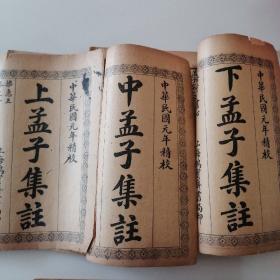 中華民國元年精校
上孟子集註
中華民國元年精校
中孟子集註
中華民國元年精校
下孟子集註